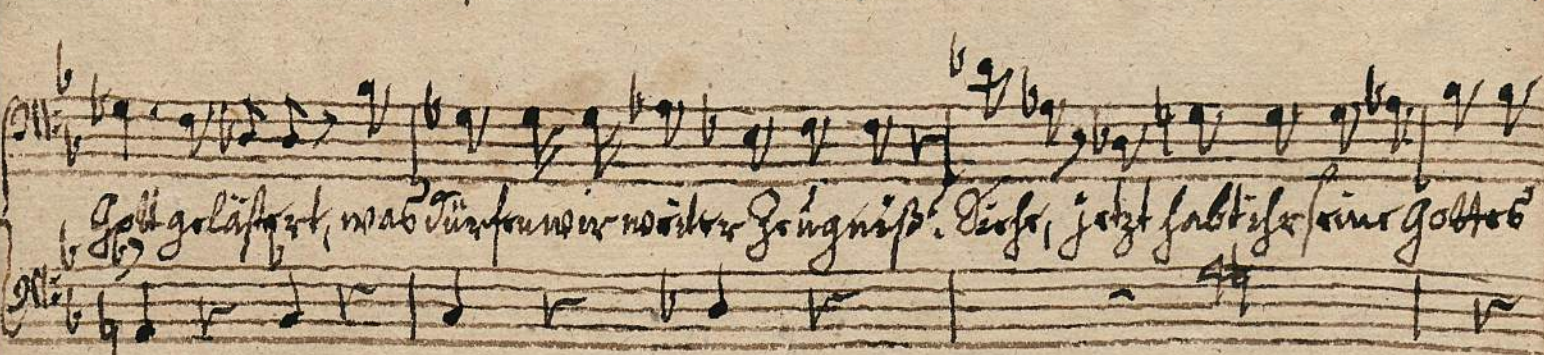 Gott gelästert, was dürfen wir weiter Zeugniß. Siehe, jetzt habt ihr seine Gottes